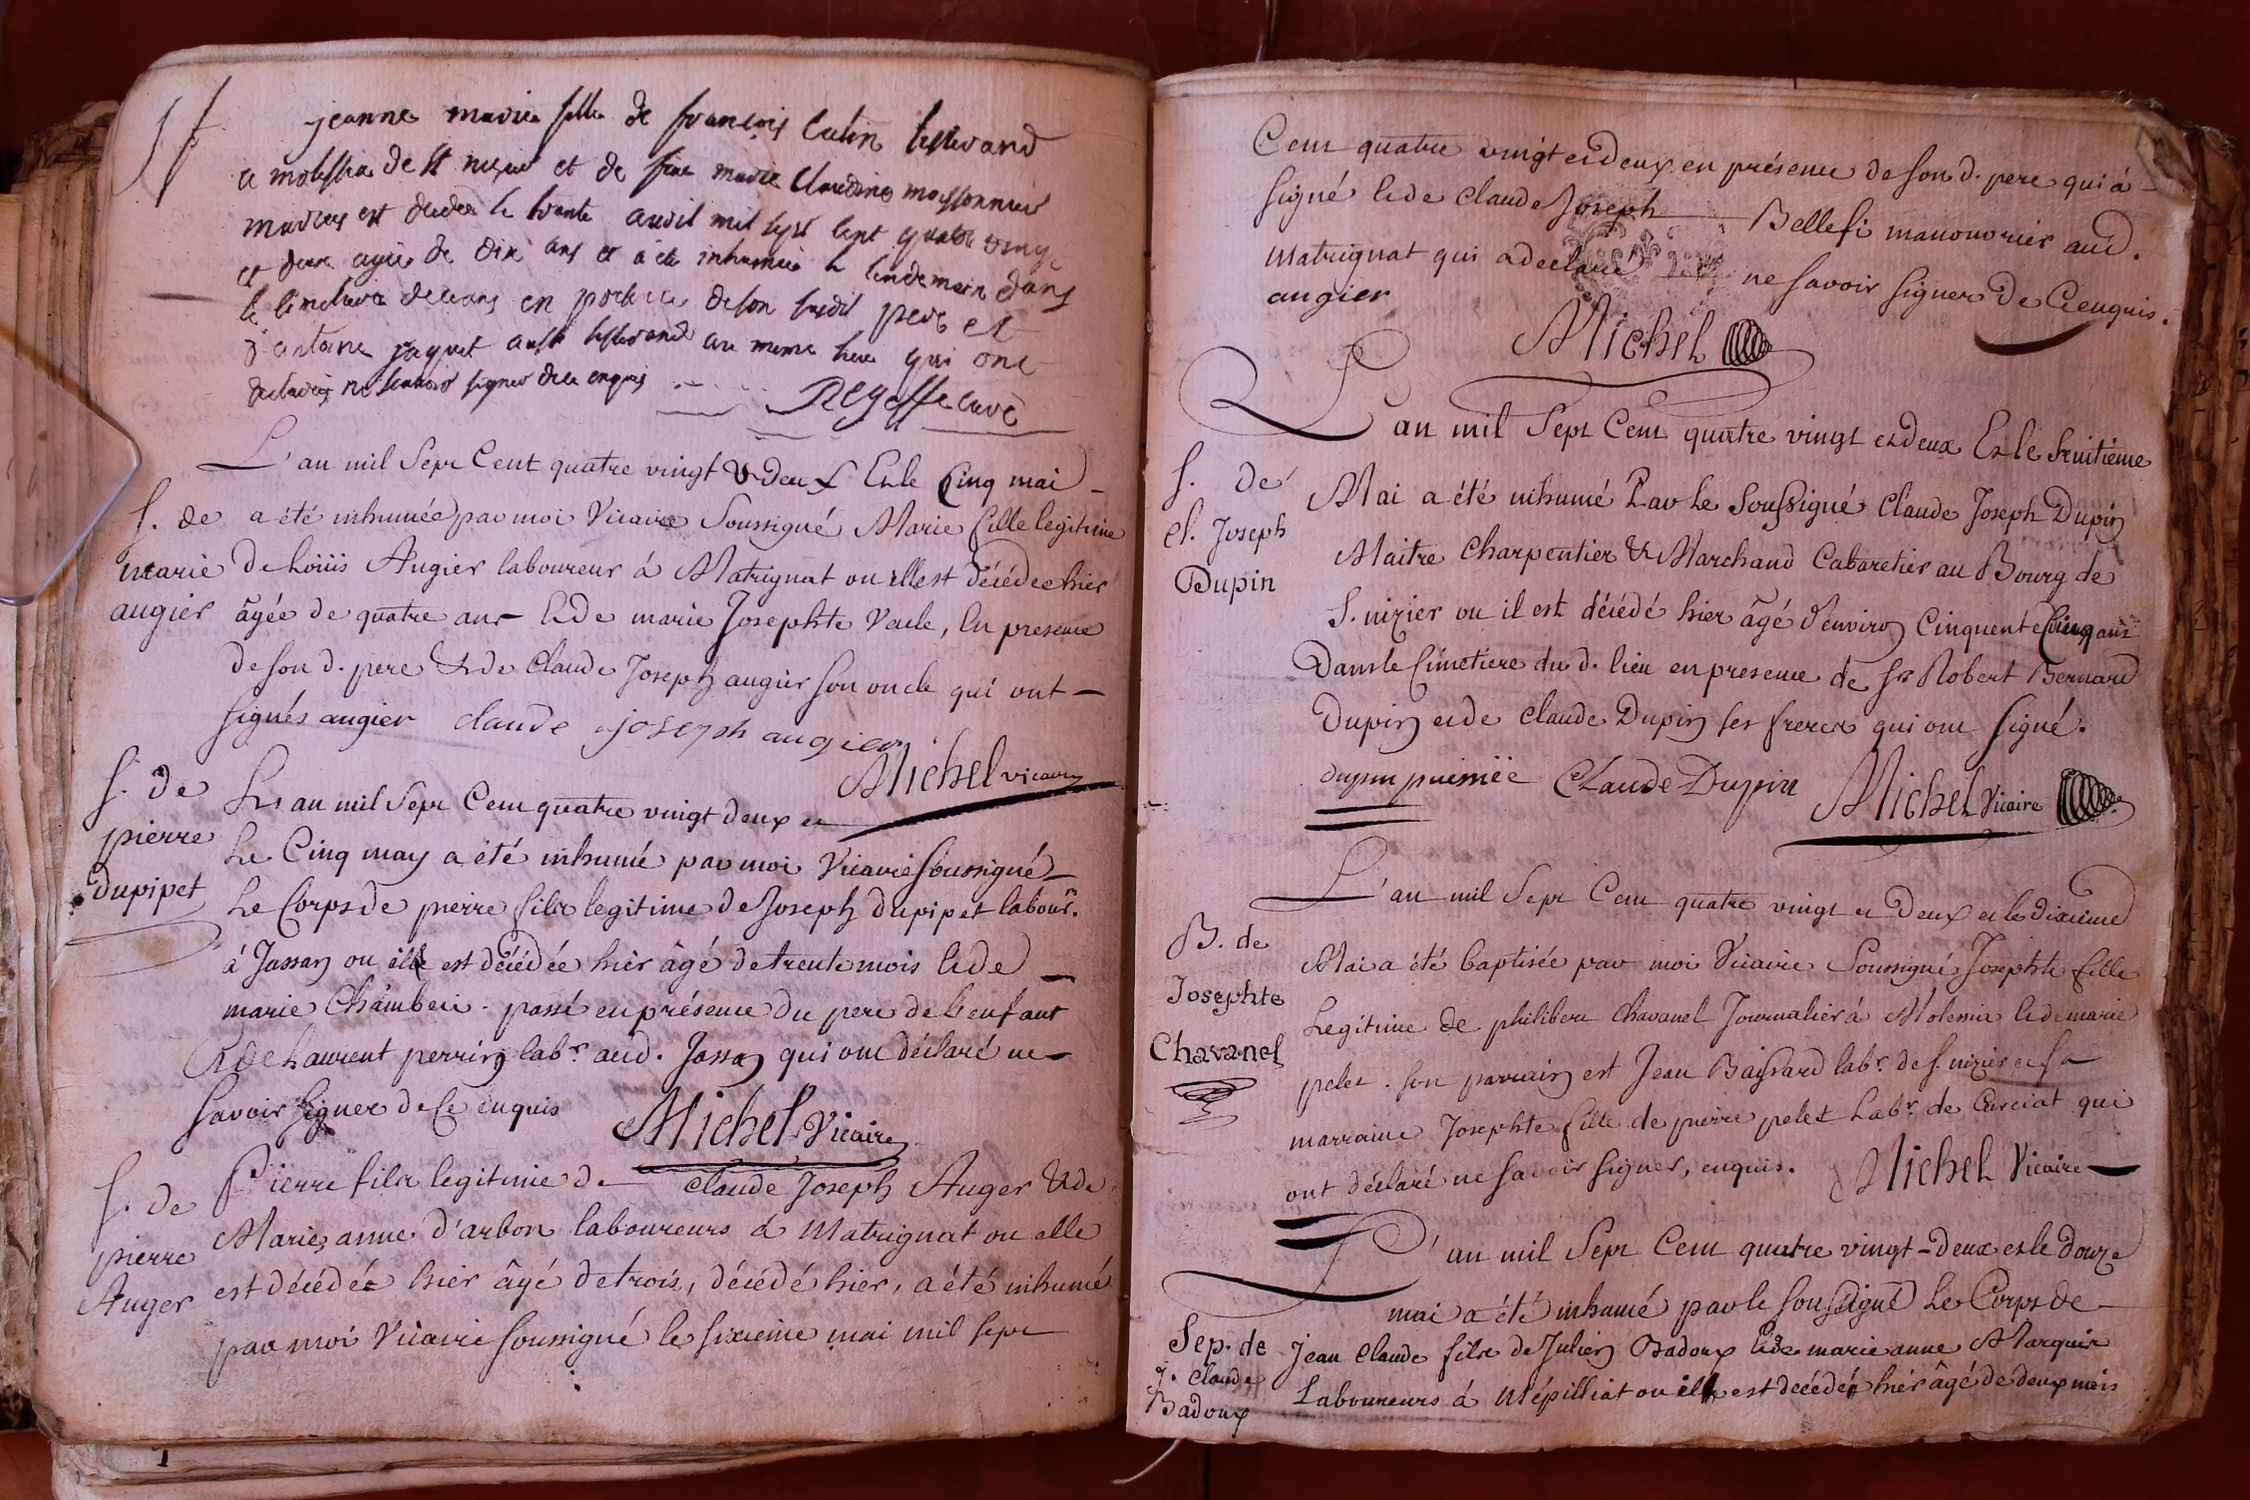 jeanne marie fille de françois catin
a de st nizié et de feue marie Claudine moissonnier
mariés est decedée le trente avril mil sept cent quatre vingt
et deux agée de dix ans et a été inhumée le lendemain dans
le cimetiere deceans en presence de son susdit pere et
d'antoine jaquet aussi au meme lieu qui ont
declarés ne scavoir signer de ce enquis
Regeffe curé
L'an mil Sept Cent quatre vingt & deux Et le Cinq mai
S. de a été inhumée par moi Vicaire Soussigné Marie fille legitime
marie de Loüis Augier laboureur à Matrignat ou elle est décédée hier
augier âgée de quatre ans et de marie Josephte Vacle, En presence
de son d. pere et de Claude Joseph augier son oncle qui ont
signés augier claude joseph augier
Michel vicaire
S. de
pierre
dupipet
L'an mil Sept Cent quatre vingt deux et
Le Cinq may a été inhumé par moi Vicaire soussigné
Le Corps de pierre fils legitime de Joseph dupipet labour.
à Jassan ou est décédée hier âgé de trente mois et de
marie Chamberi. passé en présence du pere de l'enfant
et de Laurent perrin labr. aud. Jassan qui ont déclaré ne
savoir signer de Ce enquis
Michel Vicaire
S. de
pierre
Auger
Pierre fils legitime de Claude Joseph Auger & de
Marie anne d'arbon laboureurs à Matrignat ou elle
est décédée hier âgé de trois, décédé hier, a été inhumé
par moi Vicaire soussigné le sixieme mai mil sept
Cent quatre vingt et deux en présence de son d. pere qui à
signé et de Claude Joseph Bellefi manouvrier aud.
Matrignat qui a declaré ne savoir signer de Ce enquis.
augier
Michel
L'an mil Sept Cent quatre vingt et deux Et le huitiéme
S. de
Cl. Joseph
Dupin
Mai a été inhumé Par Le Soussigné Claude Joseph Dupin
Maitre Charpentier & Marchand Cabaretier au Bourg de
S. nizier ou il est décédé hier âgé d'environ Cinquente Cinq ans
Dans le Cimetiere du d. lieu en presence de Sr Robert Bernard
Dupin et de Claude Dupin ses freres qui ont signé.
dupin puisnée Claude Dupin Michel Vicaire
L'an mil Sept Cent quatre vingt et Deux et le dixiéme
B. de
Josephte
Chavanel
Mai a été baptisée par moi Vicaire Soussigné Josephte fille
Legitime de philibert Chavanel Journalier à Molemia et de marie
pelet. son parrain est Jean Baissard labr. de S. nizier et sa
marraine Josephte fille de pierre pelet Labr. de Curciat qui
ont déclaré ne savoir signer, enquis. Michel Vicaire
L'an mil Sept Cent quatre vingt-deux et le douze
mai a été inhumé par le soussigné Le Corps de
Sep. de
j. Claude
Badoux
Jean Claude fils de Julien Badoux et de marie anne Marguin
Laboureurs à Mépilliat ou est décédé hier âgé de deux mois